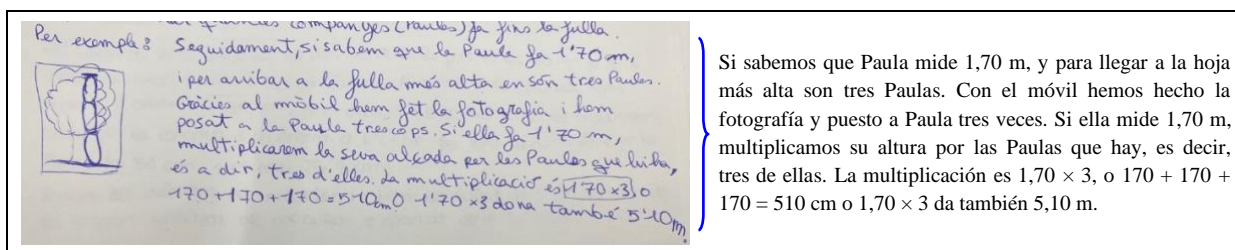 quantes companyes (Paules) fa fins la fulla.
Per exemple:
Seguidament, si sabem que la Paula fa 1'70 m,
i per arribar a la fulla més alta en són tres Paules.
Gràcies al mòbil hem fet la fotografia i hem
posat a la Paula tres cops. Si ella fa 1'70 m,
multiplicarem la seva alçada per les Paules que hi ha,
és a dir, tres d'elles. La multiplicació és 1'70 x3, o
170 + 170 + 170 = 510cm O 1'70 x3 dona també 5'10m.
Si sabemos que Paula mide 1,70 m, y para llegar a la hoja
más alta son tres Paulas. Con el móvil hemos hecho la
fotografía y puesto a Paula tres veces. Si ella mide 1,70 m,
multiplicamos su altura por las Paulas que hay, es decir,
tres de ellas. La multiplicación es 1,70 × 3, o 170 + 170 +
170 = 510 cm o 1,70 × 3 da también 5,10 m.